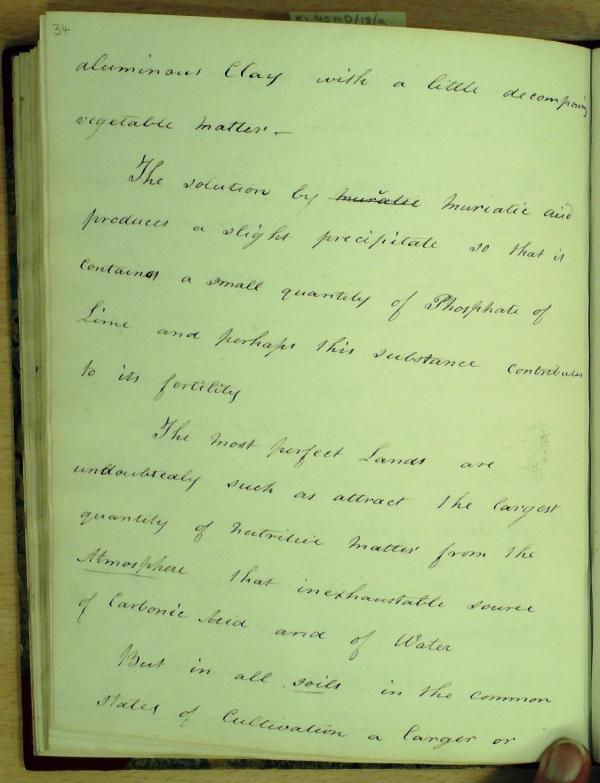 34
RI MS HD/13/a
aluminous Clay with a little decomposing
vegetable matter –
The solution by muriatic acid
produces a slight precipitate so that it
contains a small quantity of Phosphate of
Lime and perhaps this substance contributes
to its fertility
The most perfect Lands are
undoubtedly such as attract the largest
quantity of nutritive matter from the
Atmosphere that inexhaustable source
of Carbonic Acid and of Water
But in all soils in the common
states of Cultivation a larger or